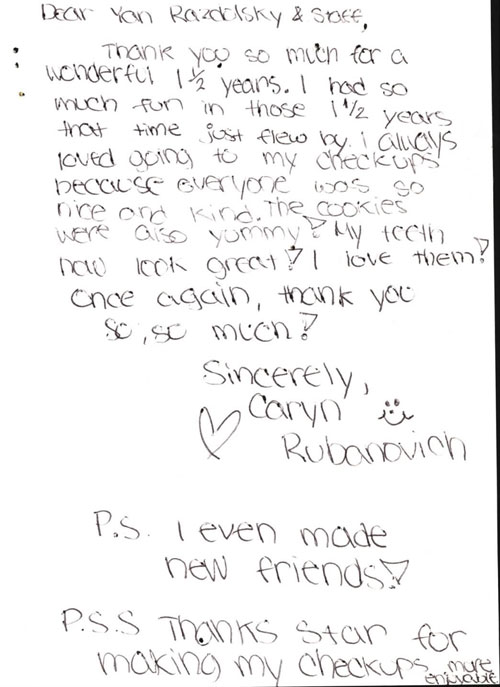 Dear Yan Razdolsky & Staff,
Thank you so much for a
wonderful 1 1/2 years. I had so
much fun in those 1 1/2 years
that time just flew by. i always
loved going to my checkups
because everyone was so
nice and kind. The cookies
were also yummy! My teeth
now look great! I love them!
Once again, thank you
so, so much!
Sincerely,
Caryn
Rubanovich
P.S. I even made
new friends!
P.S.S Thanks Star for
making my checkups more
enjoyable